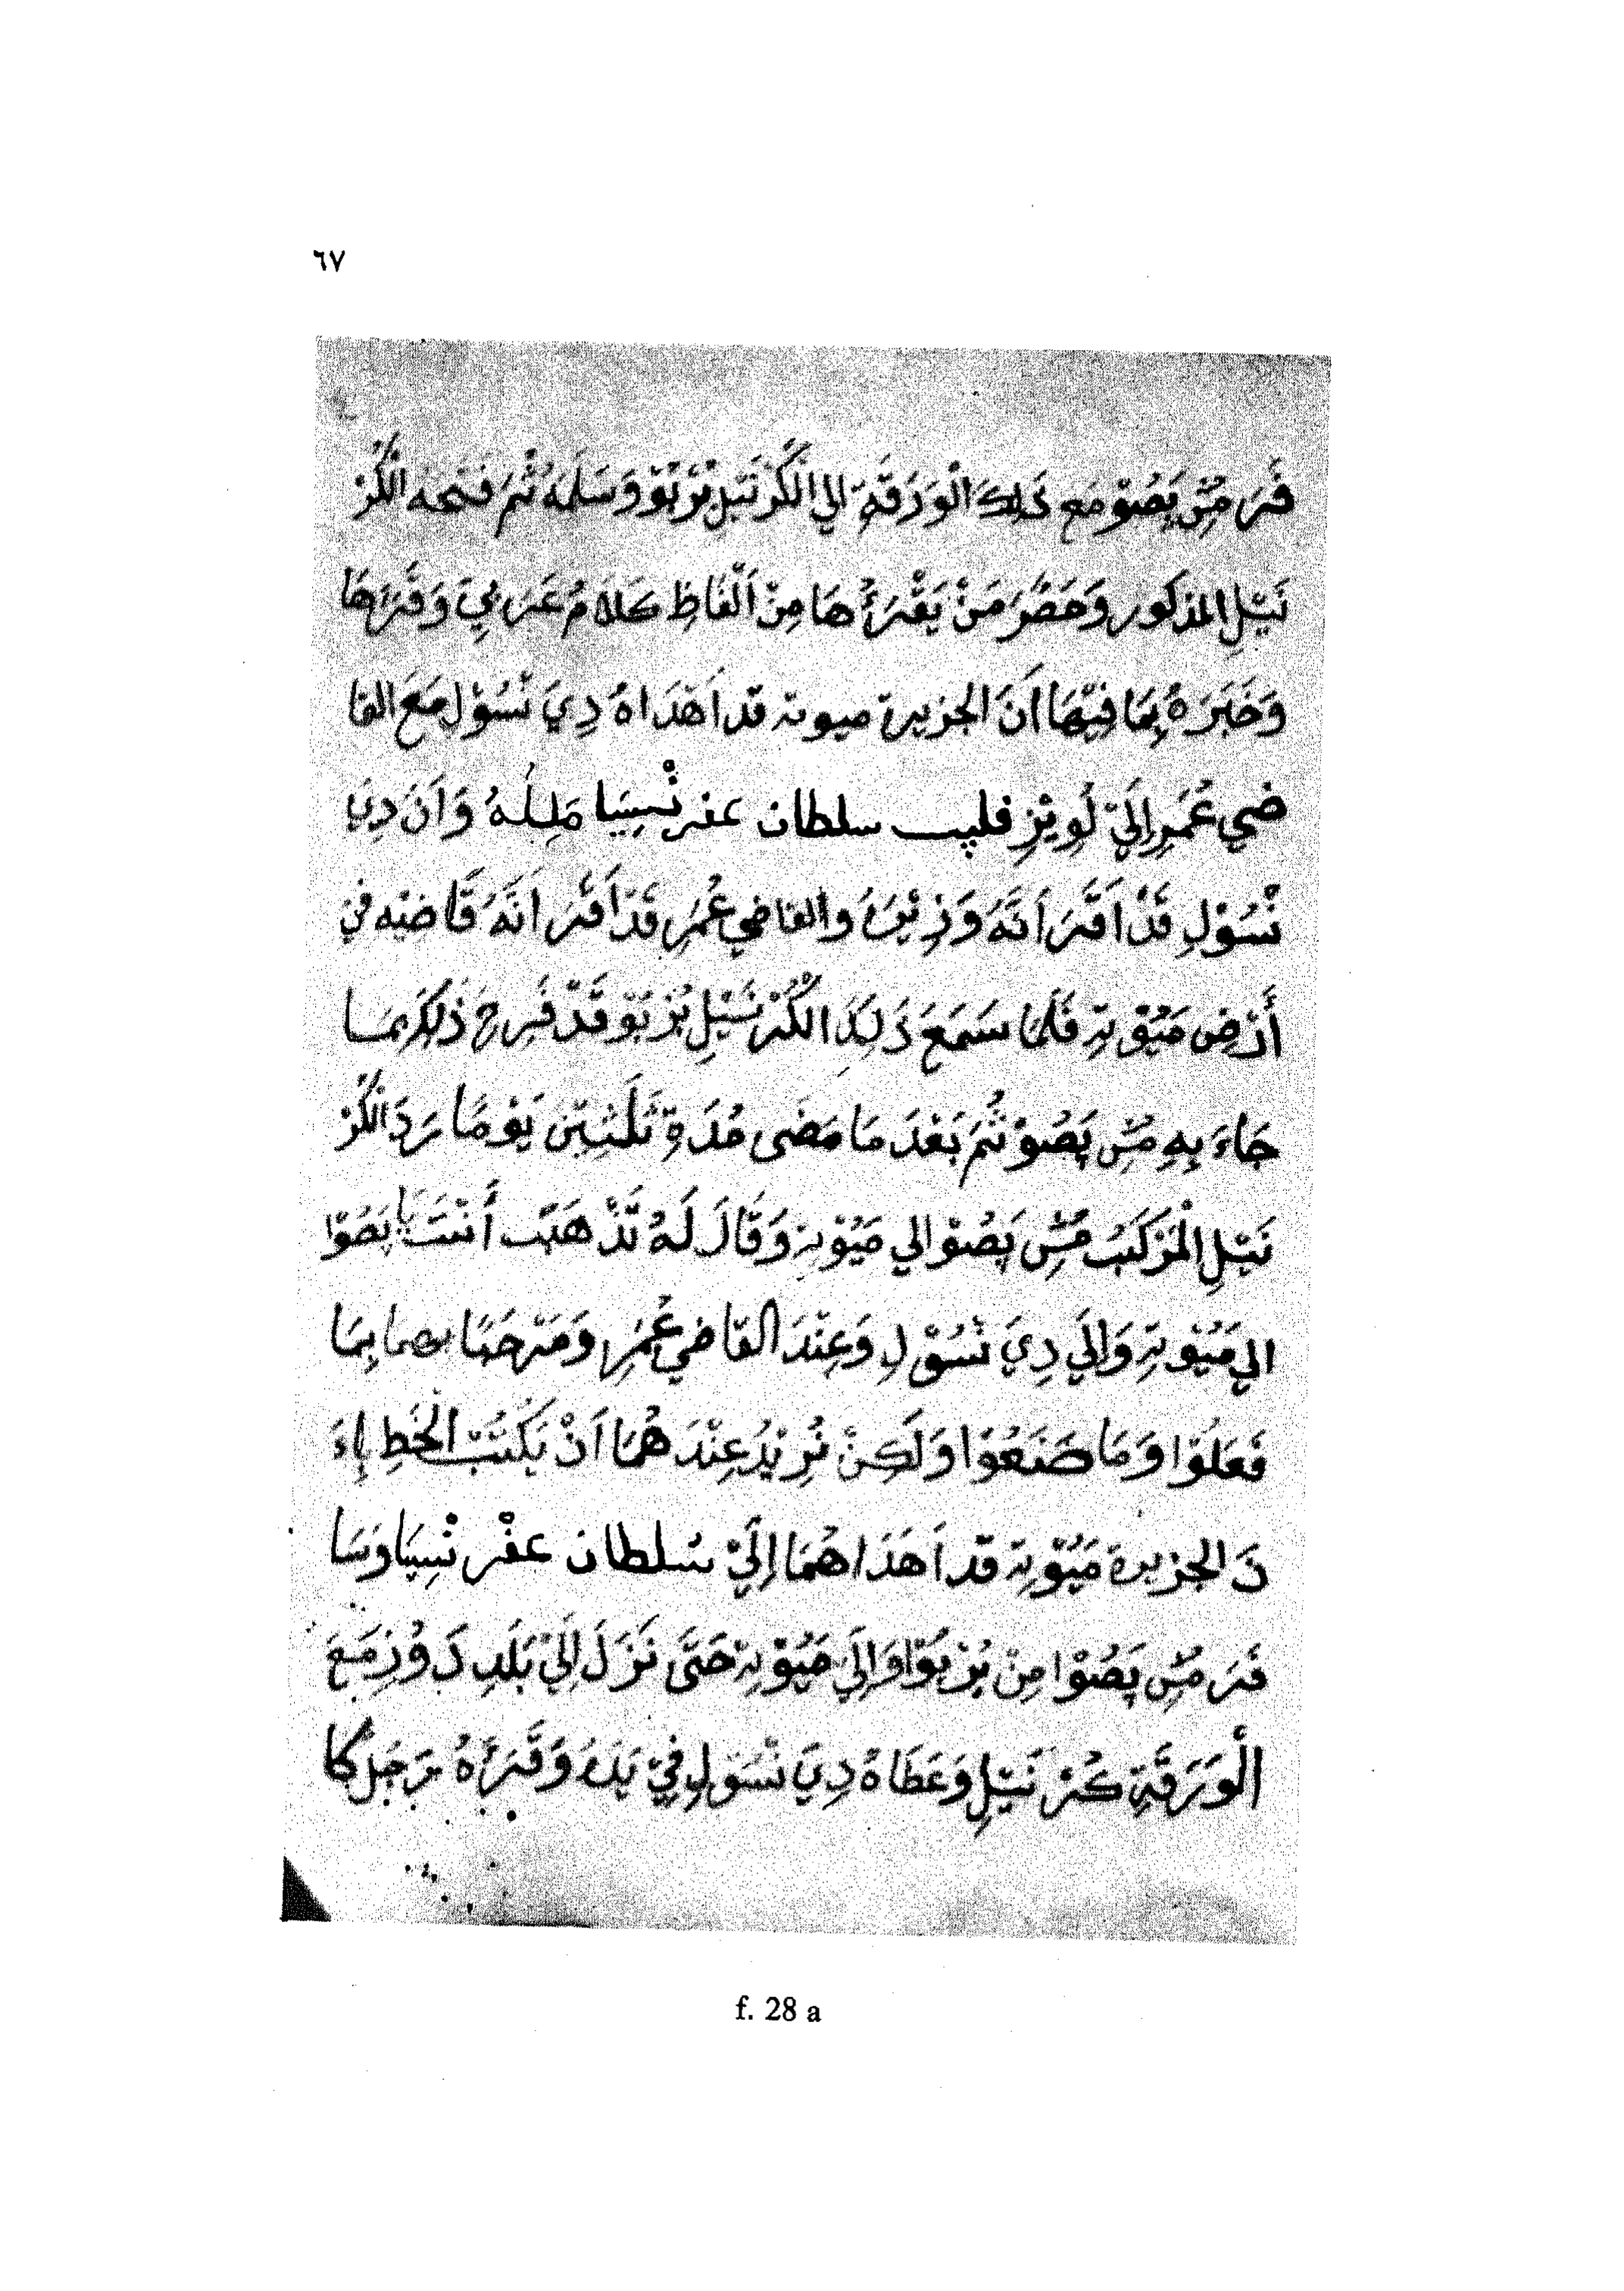 ٦٧
فَرَ مُسِ پَصُوْ مَعَ ذَلِكَ الْوَرَقَةِ الي الْكُرْنَيْلِ بُرْبُوْ وَسَلَّمَهُ ثُمَّ فَتَحَهُ الْكُرْ
نَيْلِ المذكور وَحَضَرَ مَنْ يَقْرَأُهَا مِنْ اَلْفَاظِ كَلَامُ عَرَبِيِّ وَقَرَءَهَا
وَخَبَرَهُ بِمَا فِيْهَا اَنَ الجزيرة ميوتة قد اَهْدَاهُ دِيَ نْسُوْلِ مَعَ القا
ضي عُمَرِ اِلَيْ لُوِيْزِ فليپ سلطان عفرنْسِيَا مَلِكُهُ وَاَنَ دِيَ
نْسُوْلِ قَدْ اَقَرَ اَنَّهُ وَزِيْرُهُ والقاضي عُمَرِ قَدْ اَقَرَ اَنَّهُ قَاضِيْهِ في
أَرْضِ مَيُوْتةِ فَلَمَا سَمَعَ ذَلِكَ الكُرْنَيْلِ بُرْبُوْ قَدْ فَرِحَ ذَلِكَ بِمَا
جَاءَ بِهِ مُسِ پَصُوْ ثُمَّ بَعْدَ مَا مَضَى مُدَةِ ثَلَثِيْنَ يَوْمًا رَدَ الْكُرْ
نَيْلِ الْمَرْكَبُ مُسِ پَصُوْ الي مَيُوْتة وَقَالَ لَهُ تَذْهَبْ أَنْتَ يَا پَصُوْا
الي مَيُوْتةِ وَاِلَي دِيَ نْسُوْلِ وَعِنْدَ القاضي عُمَرِ وَمَرْحَبًا بهما بِمَا
فَعَلُوْا وَمَا صَنَعُوْا وَلَكِنْ نُرِيْدُ عِنْدَهُمَا اَنْ يَكْتُبْ الْخَطِ بِاءَ
نَ الجزيرة مَيُوْتة قد اَهْدَاهُمَا اِلَيْ سُلطان عفْرنْسِيَا وَسَا
فَرَ مُسِ پَصُوْا مِنْ بُرْبُوْا وَاِلَي مَيُوْتة حَتَّى نَزَلَ اِلَيْ بَلَدِ دَوُزِ مَعَ
الْوَرَقَةِ كُرْنَيْلِ وَعَطَاهُ دِيَ نْسُوْلِ فِيْ يَدَهُ وَقَرَءَهُ رَجُلٌ كَا
f. 28 a